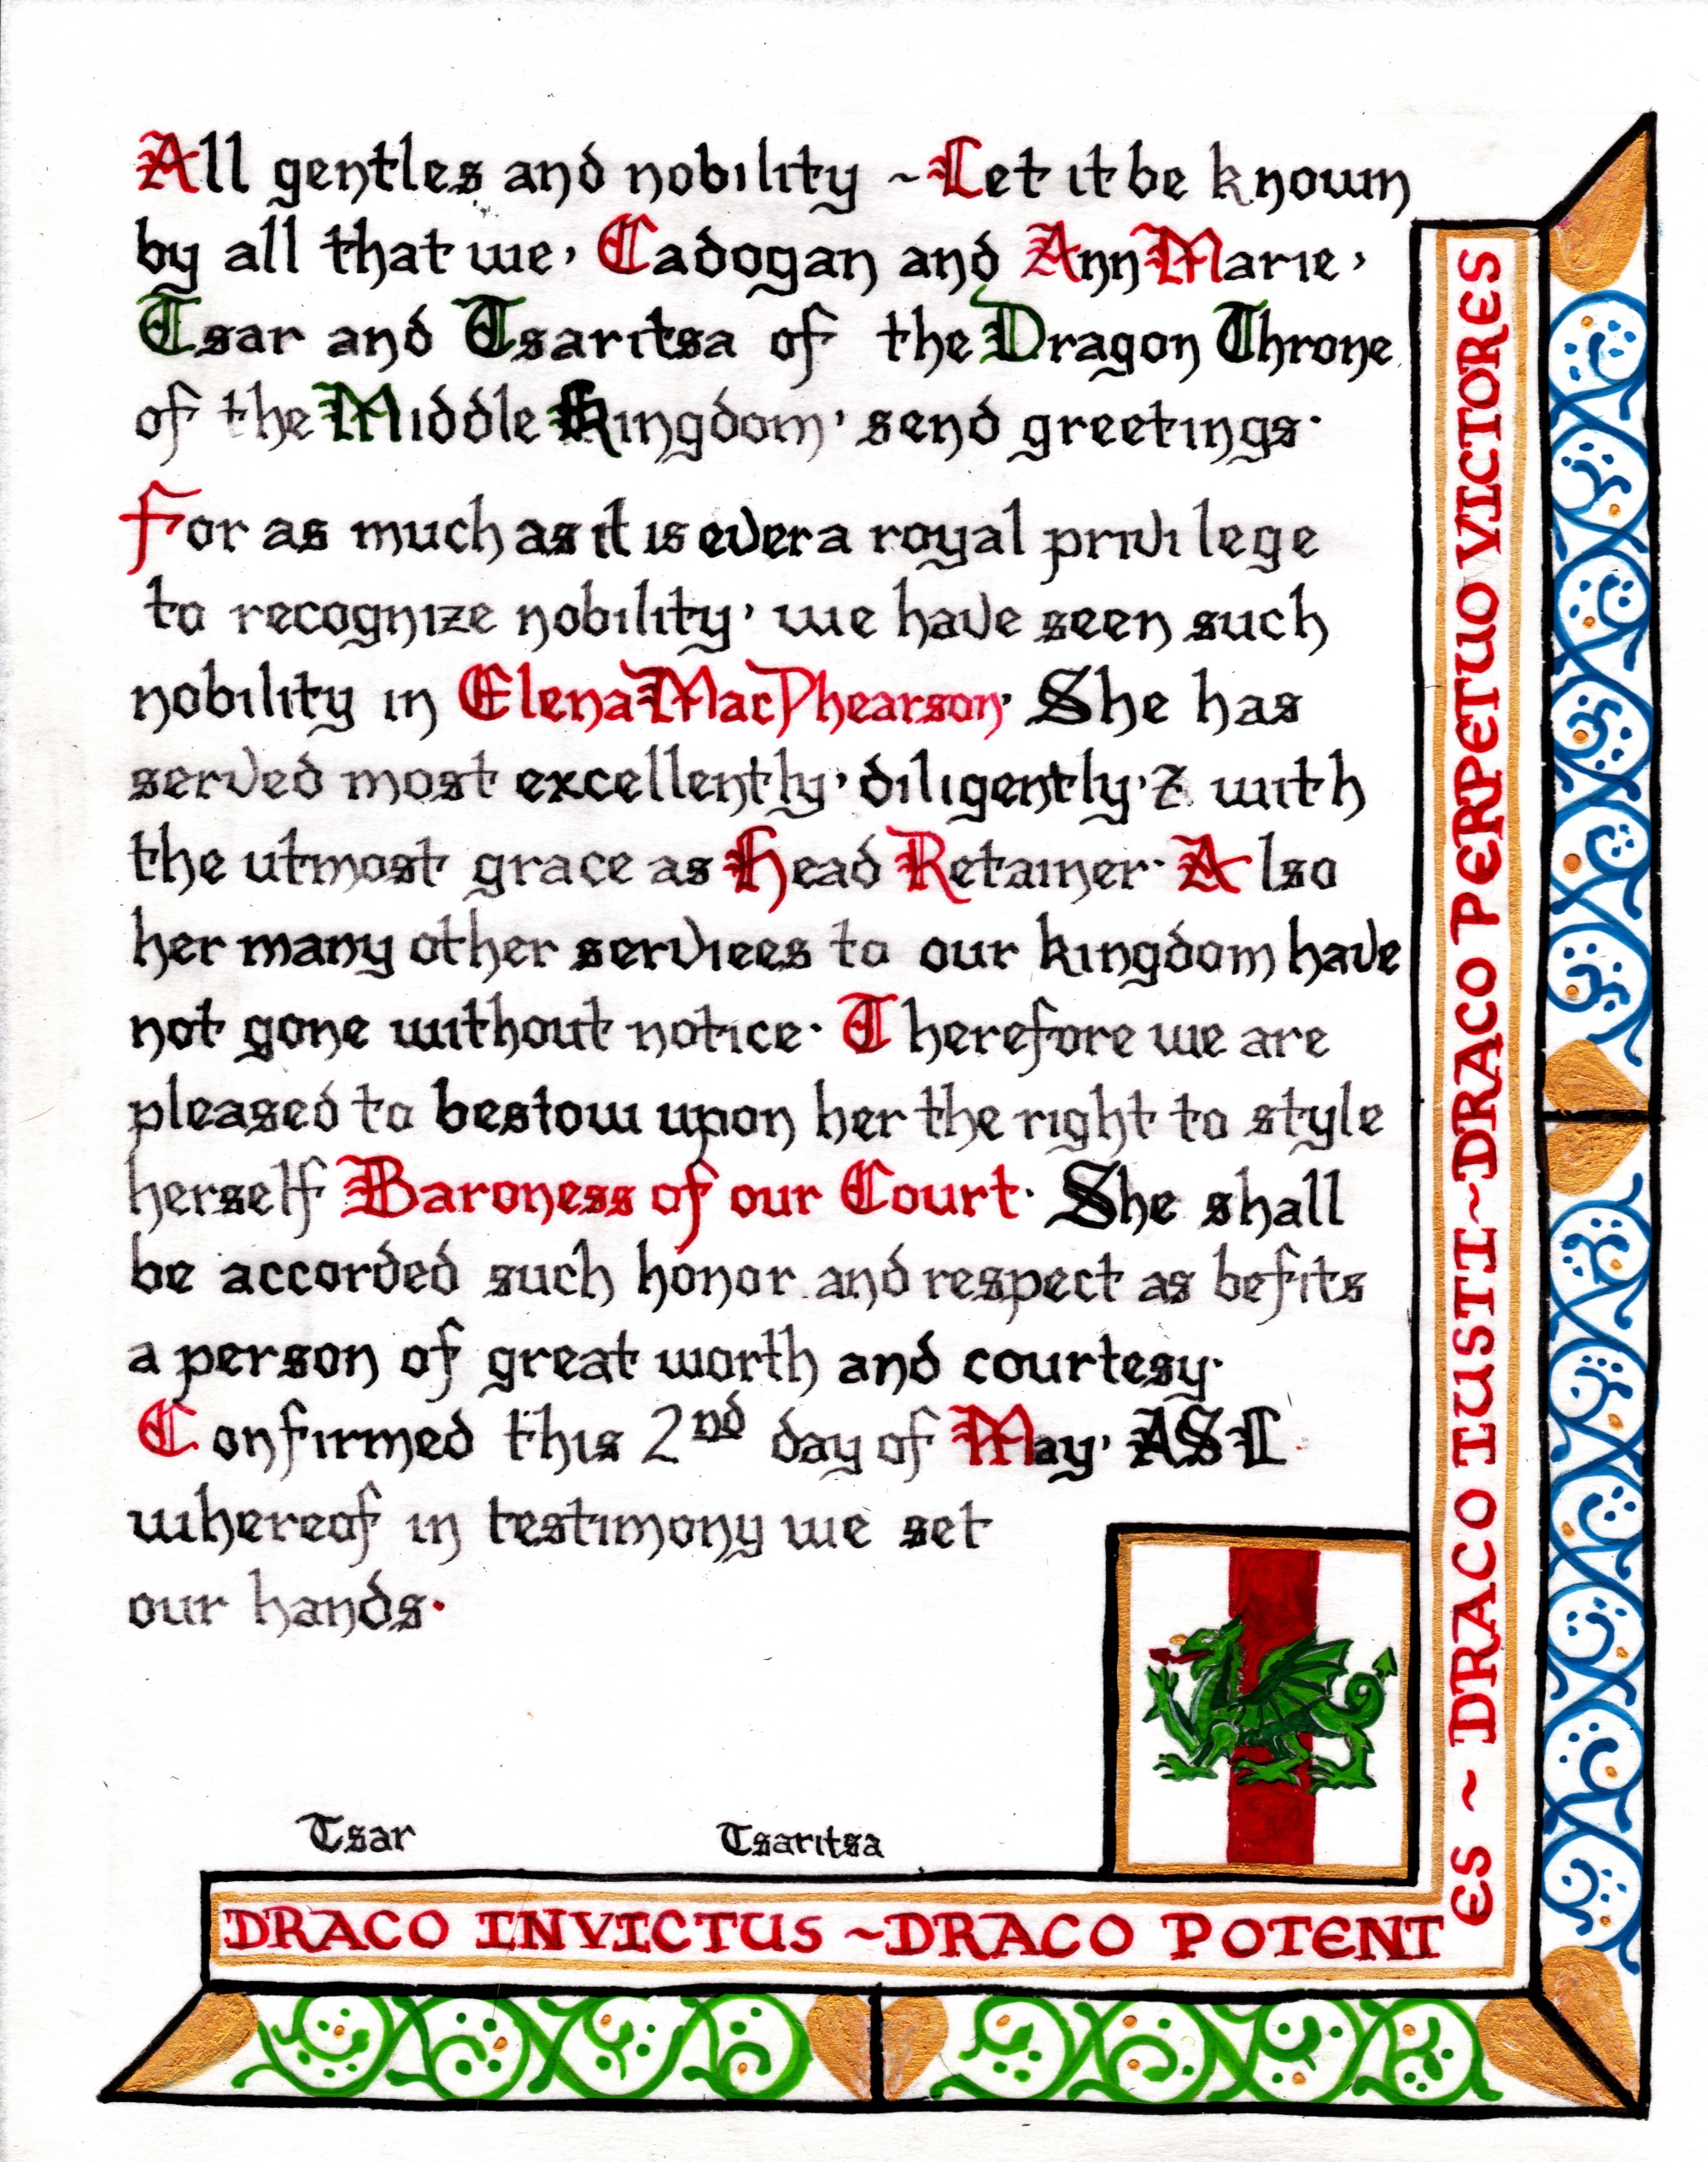 All gentles and nobility ~ Let it be known
by all that we, Cadogan and AnnMarie,
Tsar and Tsaritsa of the Dragon Throne
of the Middle Kingdom, send greetings.
For as much as it is ever a royal privilege
to recognize nobility, we have seen such
nobility in Elena MacPhearson. She has
served most excellently, diligently, & with
the utmost grace as Head Retainer. Also
her many other serviees to our kingdom have
not gone without notice. Therefore we are
pleased to bestow upon her the right to style
herself Baroness of our Court. She shall
be accorded such honor and respect as befits
a person of great worth and courtesy.
Confirmed this 2nd day of May, AS L
whereof in testimony we set
our hands.
Tsar Tsaritsa
DRACO INVICTUS ~ DRACO POTENT
ES ~ DRACO IUSTI ~ DRACO PERPETUO VICTORES